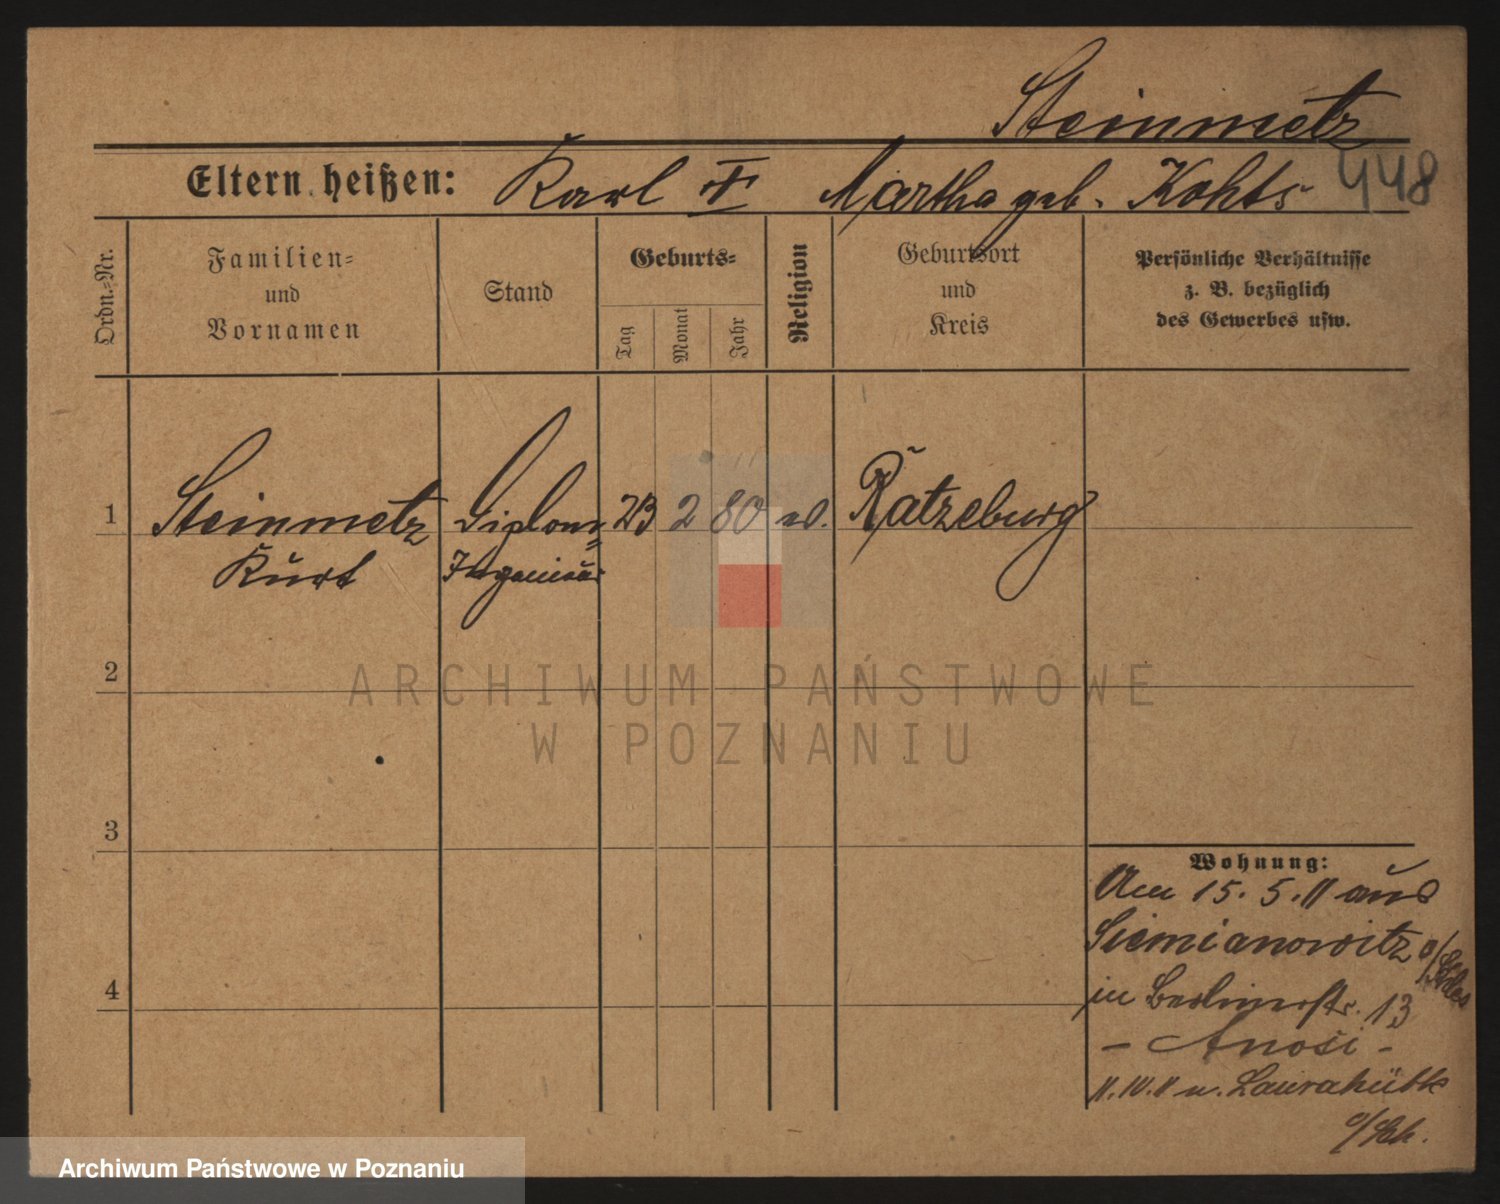 Steinmetz
448
Eltern heißen: Karl † Martha geb. Kohts
Ordn.-Nr.
Familien-
und
Vornamen
Stand
Geburts-
Tag
Monat
Jahr
Religion
Geburtsort
und
Kreis
Persönliche Verhältnisse
z. B. bezüglich
des Gewerbes usw.
1
Steinmetz
Kurt
Diplom-
Ingenieur
23 2 80 ev. Ratzeburg
2
3
4
Wohnung:
Am 15. 5. 11 aus
Siemianowitz
in Berlinerstr. 13
- Anosi -
11. IV. 11 n. Laurahütte
ARCHIWUM PAŃSTWOWE
W POZNANIU
Archiwum Państwowe w Poznaniu